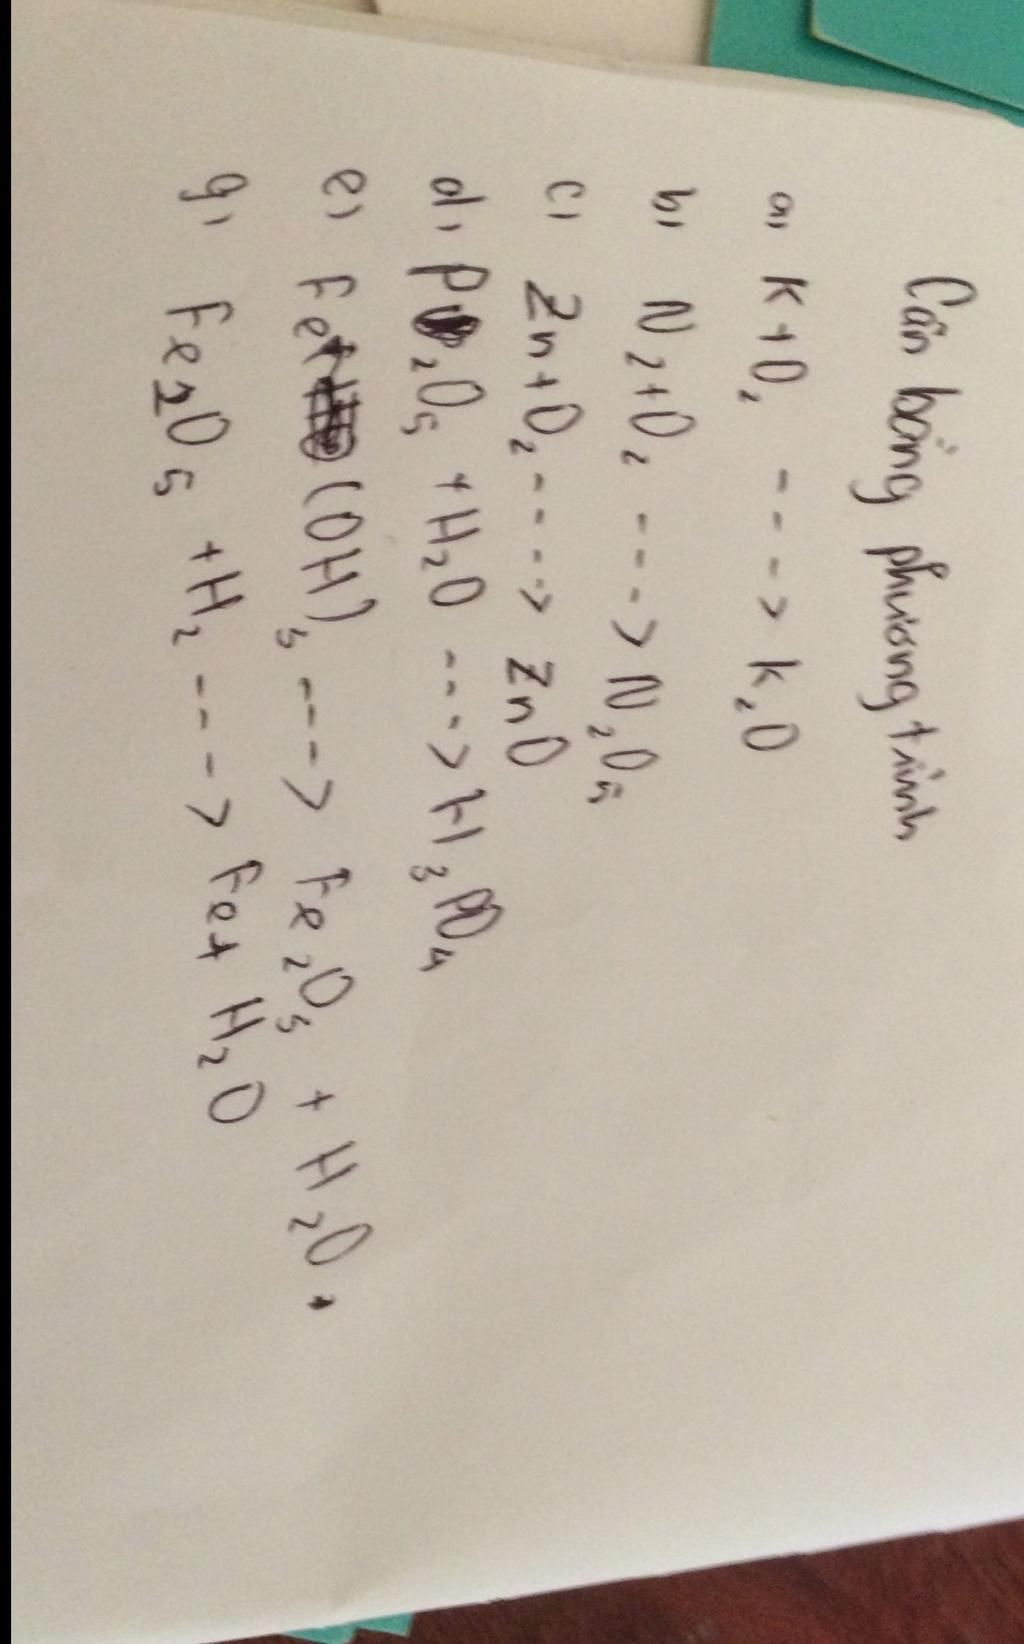 Cân bằng phương trình
a, K + O₂ ----> K₂O
b, N₂ + O₂ ----> N₂O₅
c, Zn + O₂ ----> ZnO
d, P₂O₅ + H₂O ---> H₃PO₄
e, Fe(OH)₅ ---> Fe₂O₅ + H₂O.
g, Fe₂O₅ + H₂ ----> Fe + H₂O